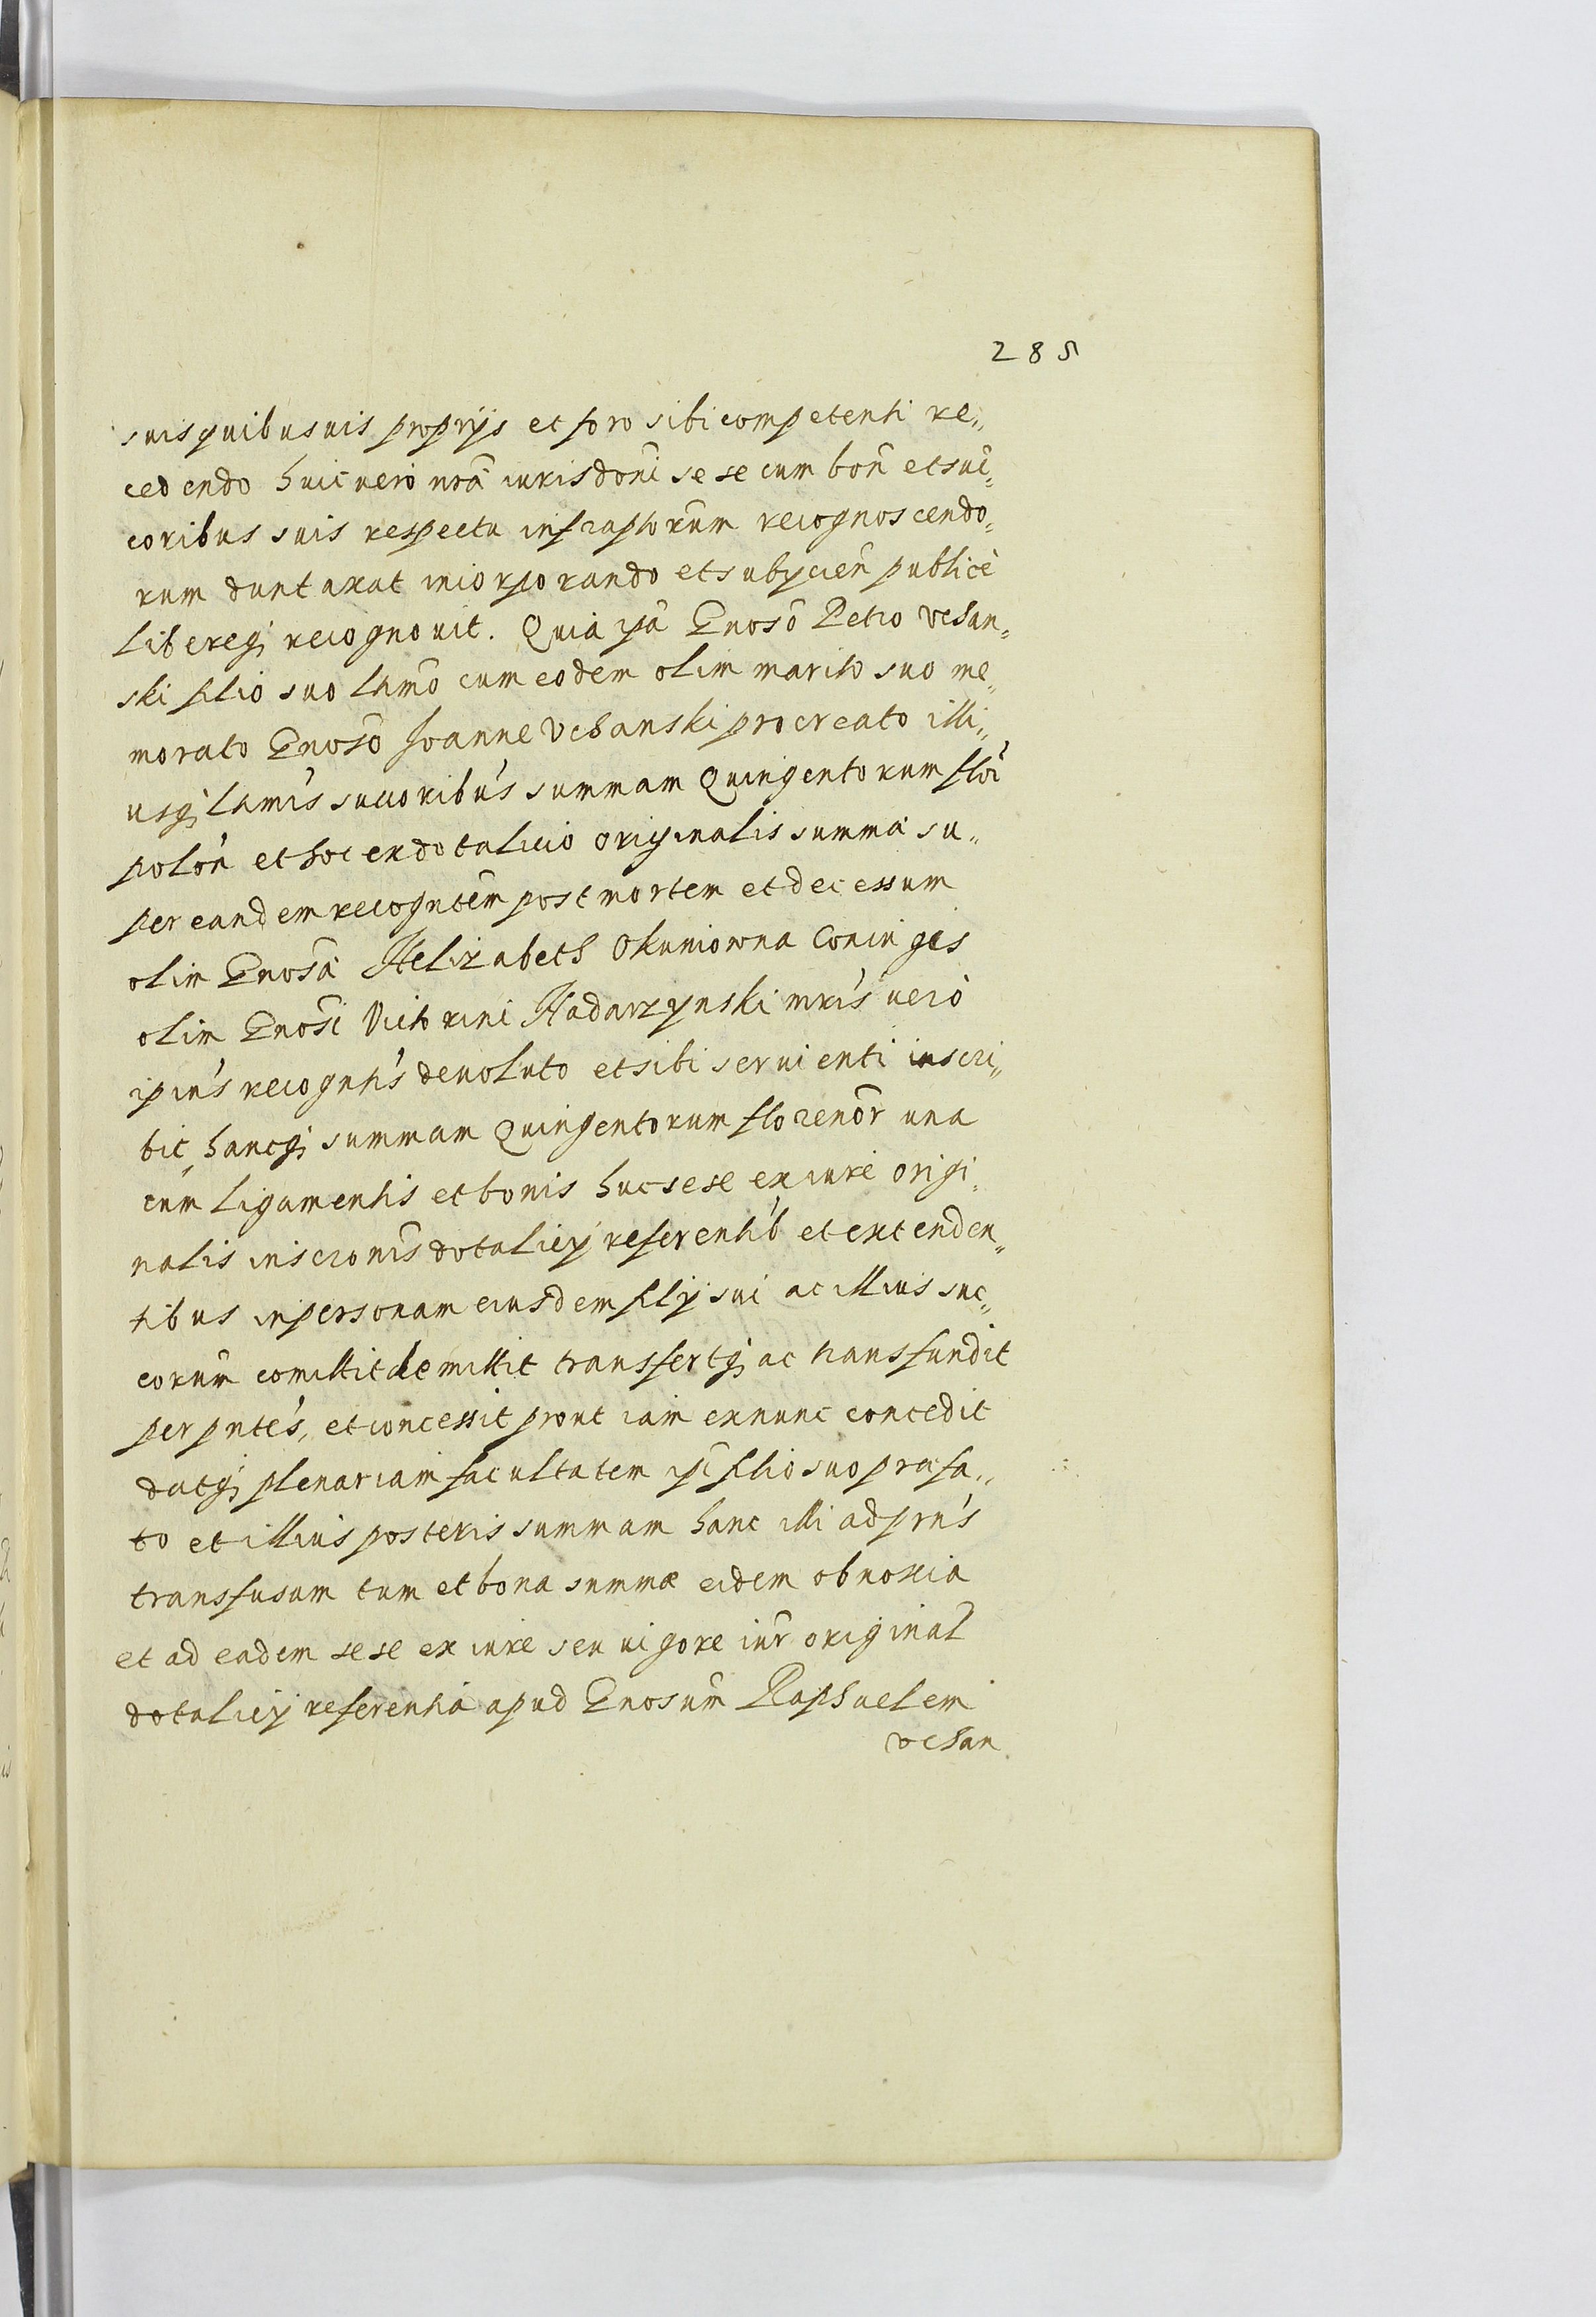 285
suis quibusuis proprijs et foro sibi competenti re„
cedendo huic uero nrã iurisdoñi sese cum boñ et suc„
coribus suis respectu infraptorum recognoscendo„
rum duntaxat incorporando et subijcieñ publicè
libereq; recognouit. Quia ipã Gnosõ Petro Vchan„
ski filio suo lttmõ cum eodem olim marito suo me„
morato Gnosõ Joanne Vchanski procreato illi„
usq; lttmis succoribus summam Quingentorum floř
poloń et hoc ex dotalicio originalis summa su„
per eandem recogntem post mortem et decessum
olim Gnosã Helizabeth Okuniowna Coniuges
olim Gnosi Victorini Nadarzynski mris uerò
ipius recogntis deuoluto et sibi seruienti inscri„
bit, hancq; summam Quingentorum florenoř una
cum ligamentis et bonis huc sese ex iure origi„
nalis inscronis dotalicij referentib et extenden„
tibus in personam eiusdem filij sui ac illius suc„
corum comittit demittit transfertq; ac transfundit
per pntes, et concessit prout iam exnunc concedit
datq; plenariam facultatem ipi filio suo praefa„
to et illius posteris summam hanc illi ad prns
transfusam tum et bona summæ eidem obnoxia
et ad eadem sese ex iure seu uigore iur original
dotalicij referentia apud Gnosum Raphaelem
Vchan